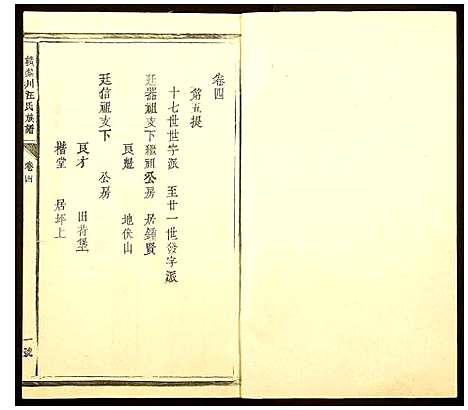 卷四
第五提
十七世世字派 至廿一世發字派
廷器祖支下繼祖公房 居鍾賢
良魁 地伏山
廷信祖支下 公房
良才 田背堡
楷堂 居坪上
川汪氏族譜 卷四 一號